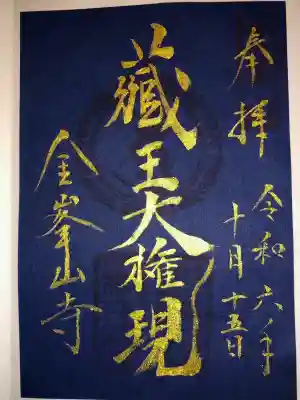 奉拝
令和六年
十月十五日
藏王大権現
金峯山寺